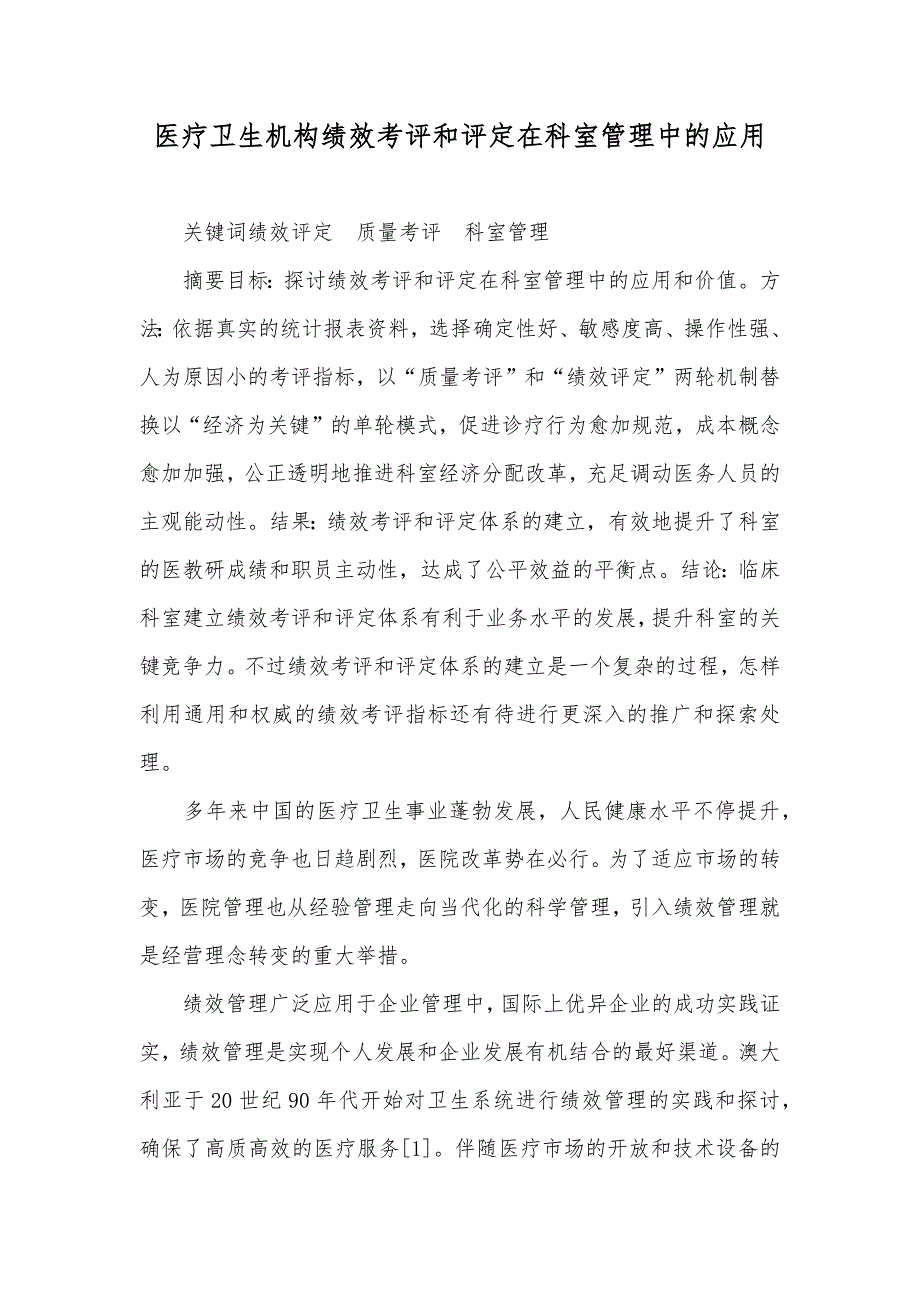 医疗卫生机构绩效考评和评定在科室管理中的应用
关键词绩效评定　质量考评　科室管理
摘要目标：探讨绩效考评和评定在科室管理中的应用和价值。方
法：依据真实的统计报表资料，选择确定性好、敏感度高、操作性强、
人为原因小的考评指标，以“质量考评”和“绩效评定”两轮机制替
换以“经济为关键”的单轮模式，促进诊疗行为愈加规范，成本概念
愈加加强，公正透明地推进科室经济分配改革，充足调动医务人员的
主观能动性。结果：绩效考评和评定体系的建立，有效地提升了科室
的医教研成绩和职员主动性，达成了公平效益的平衡点。结论：临床
科室建立绩效考评和评定体系有利于业务水平的发展，提升科室的关
键竞争力。不过绩效考评和评定体系的建立是一个复杂的过程，怎样
利用通用和权威的绩效考评指标还有待进行更深入的推广和探索处
理。
多年来中国的医疗卫生事业蓬勃发展，人民健康水平不停提升，
医疗市场的竞争也日趋剧烈，医院改革势在必行。为了适应市场的转
变，医院管理也从经验管理走向当代化的科学管理，引入绩效管理就
是经营理念转变的重大举措。
绩效管理广泛应用于企业管理中，国际上优异企业的成功实践证
实，绩效管理是实现个人发展和企业发展有机结合的最好渠道。澳大
利亚于 20 世纪 90 年代开始对卫生系统进行绩效管理的实践和探讨，
确保了高质高效的医疗服务[1]。伴随医疗市场的开放和技术设备的